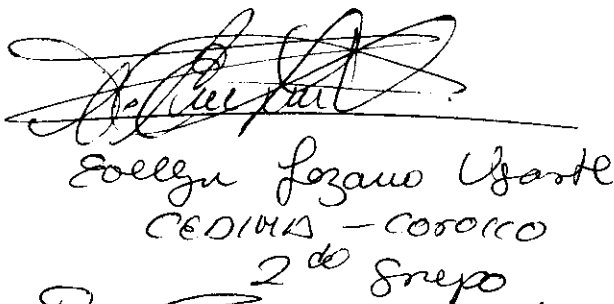 Evelyn Lozano Ugarte
CEDIMA - COROICO
2do Grupo